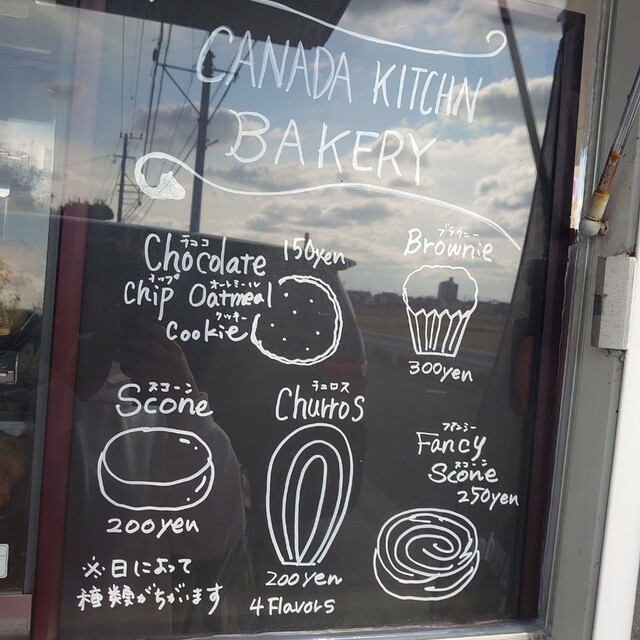 CANADA KITCHN
BAKERY
チョコ
Chocolate 150yen
チップ オートミール
Chip Oatmeal
クッキー
Cookie
ブラウニー
Brownie
300yen
スコーン
Scone
200yen
チュロス
Churros
200yen
4 Flavors
ファンシー
Fancy
スコーン
Scone
250yen
※日によって
種類がちがいます